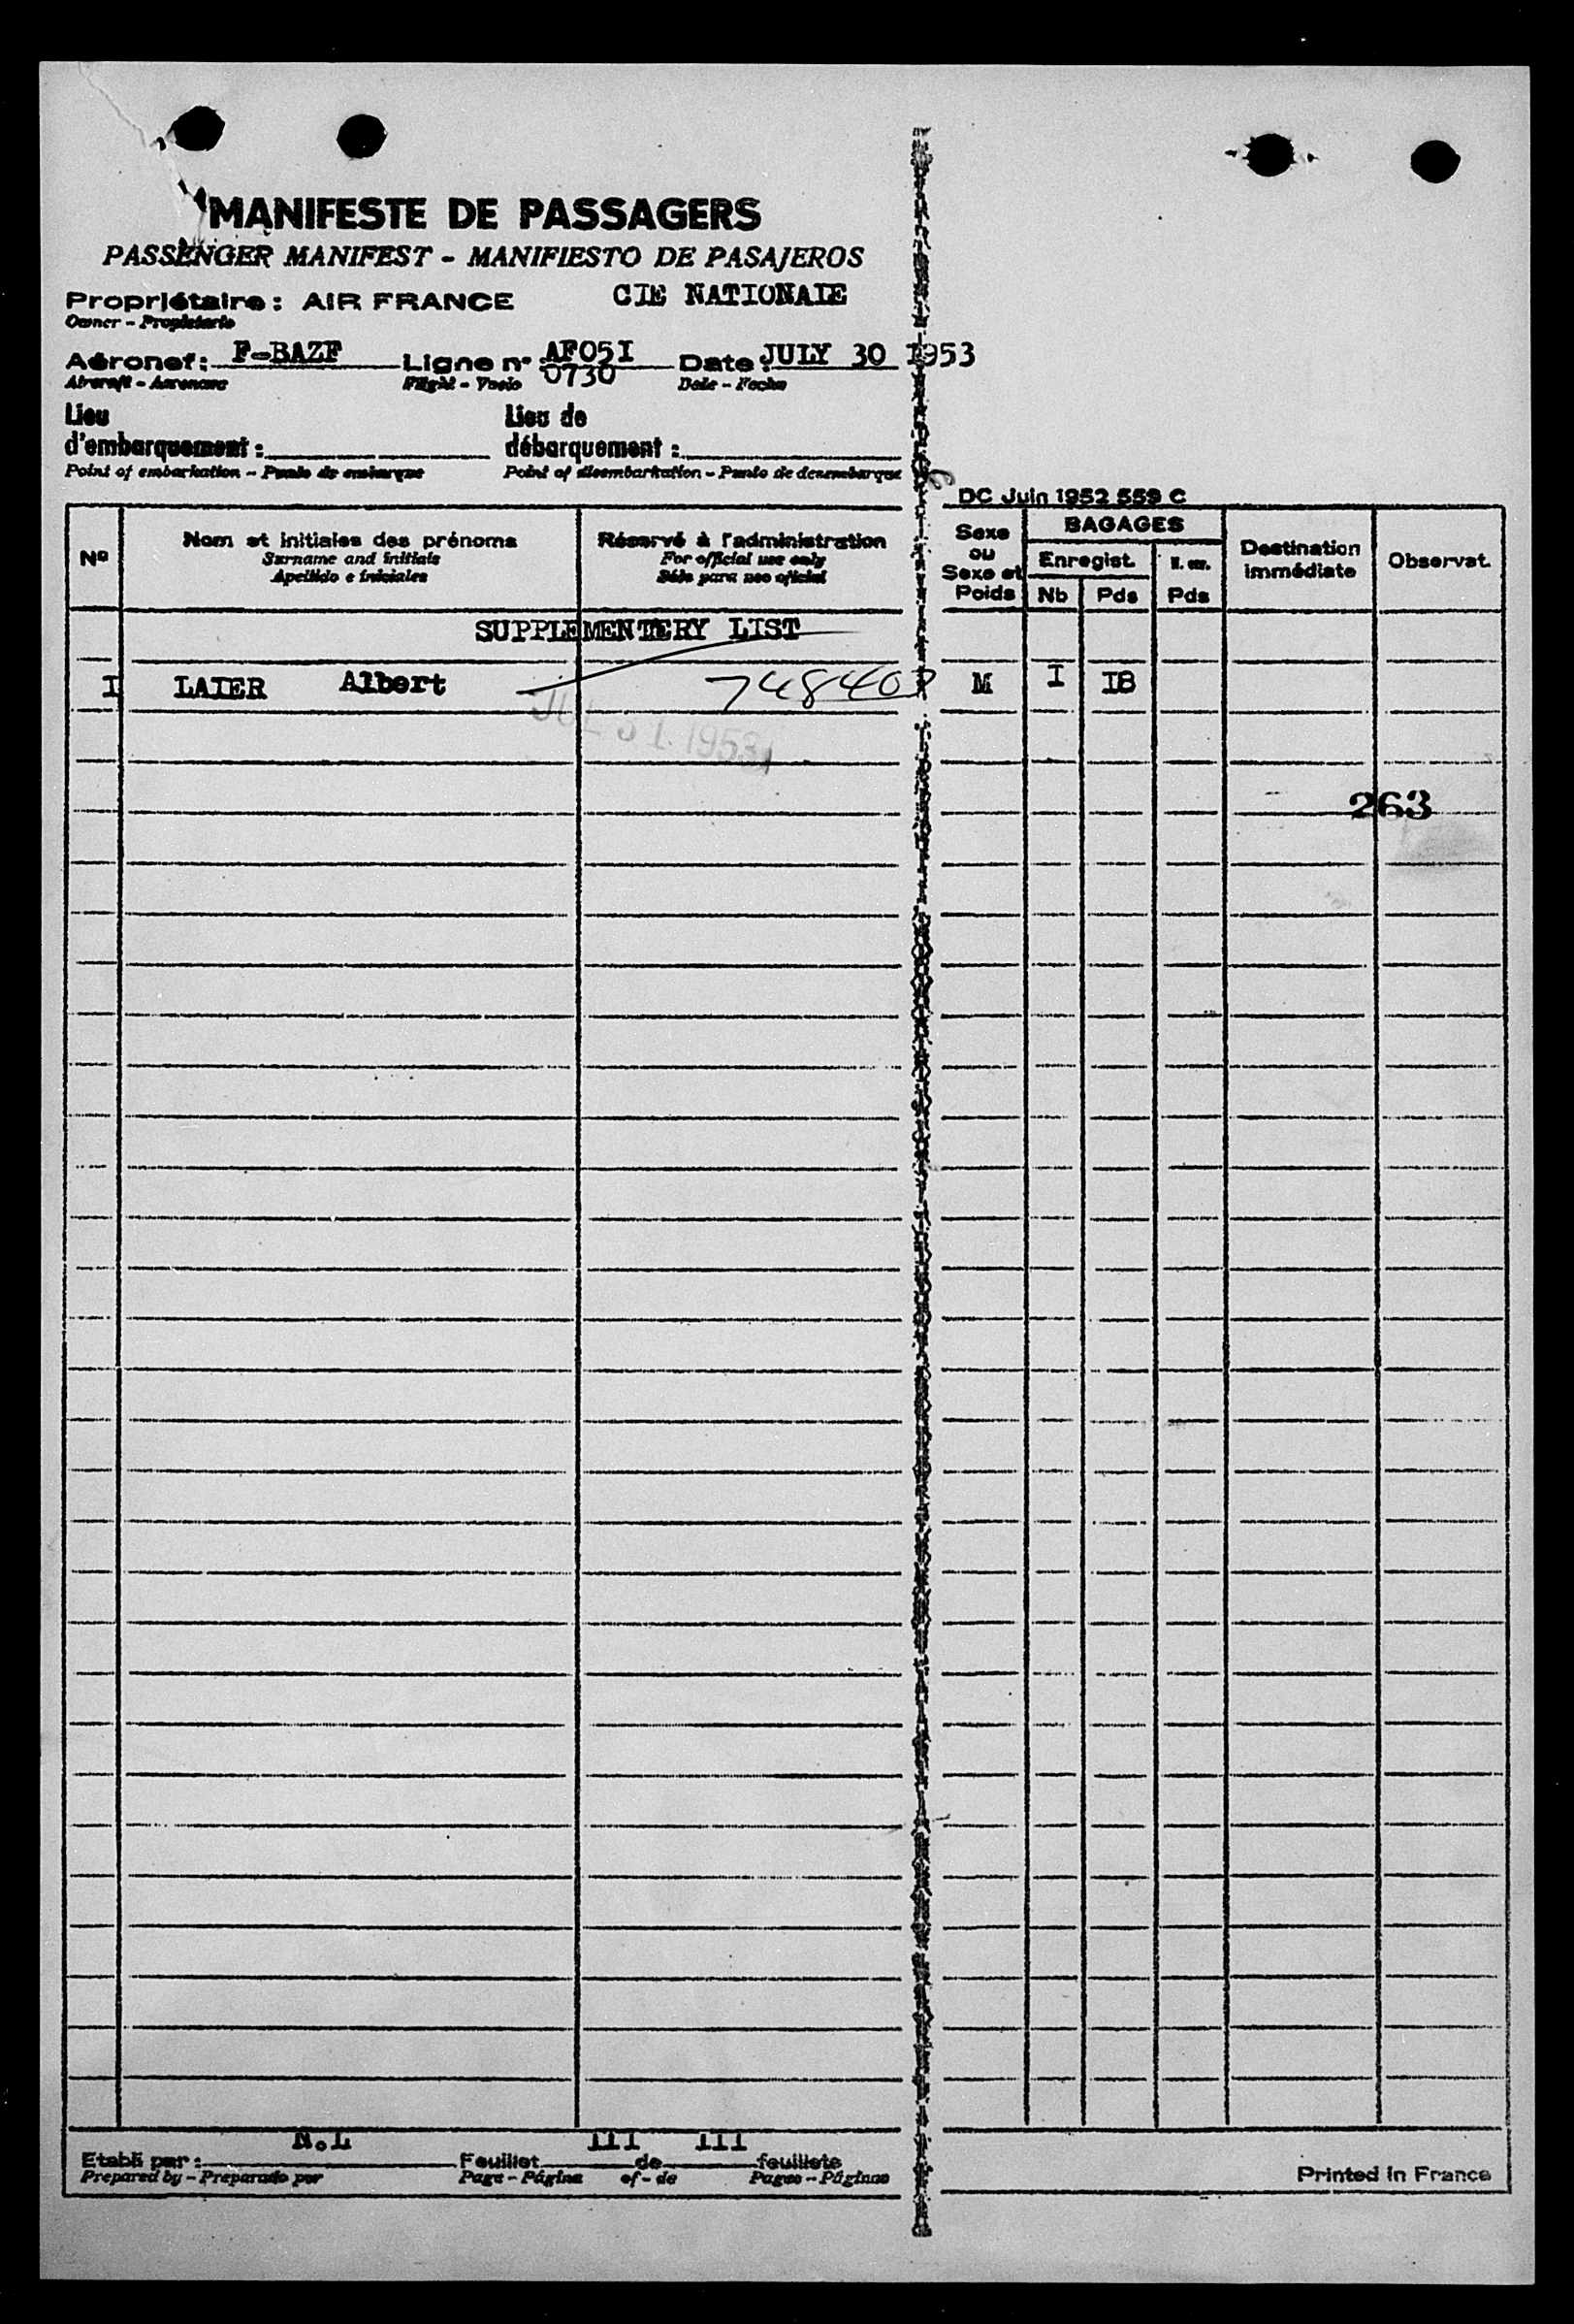 MANIFESTE DE PASSAGERS
PASSENGER MANIFEST - MANIFIESTO DE PASAJEROS
Propriétaire : AIR FRANCE CIE NATIONALE
Owner - Propietario
Aéronef : F-BAZF Ligne n° AF05I Date : JULY 30 1953
Aircraft - Aeronave Flight - Vuelo 0730 Date - Fecha
Lieu Lieu de
d'embarquement : débarquement :
Point of embarkation - Punto de embarque Point of disembarkation - Punto de desembarque
DC Juin 1952 559 C
Nº Nom et initiales des prénoms Réservé à l'administration Sexe ou Sexe et Poids BAGAGES Destination immédiate Observat.
Surname and initials For official use only Enregist. N. enr.
Apellido e iniciales Sólo para uso oficial Nb Pds Pds
SUPPLEMENTERY LIST
I LAIER Albert 748403 M I I8
JUL 31 1953
263
N.L III III
Etabli par : Feuillet de feuillets
Prepared by - Preparado por Page - Página of - de Pages - Páginas
Printed in France